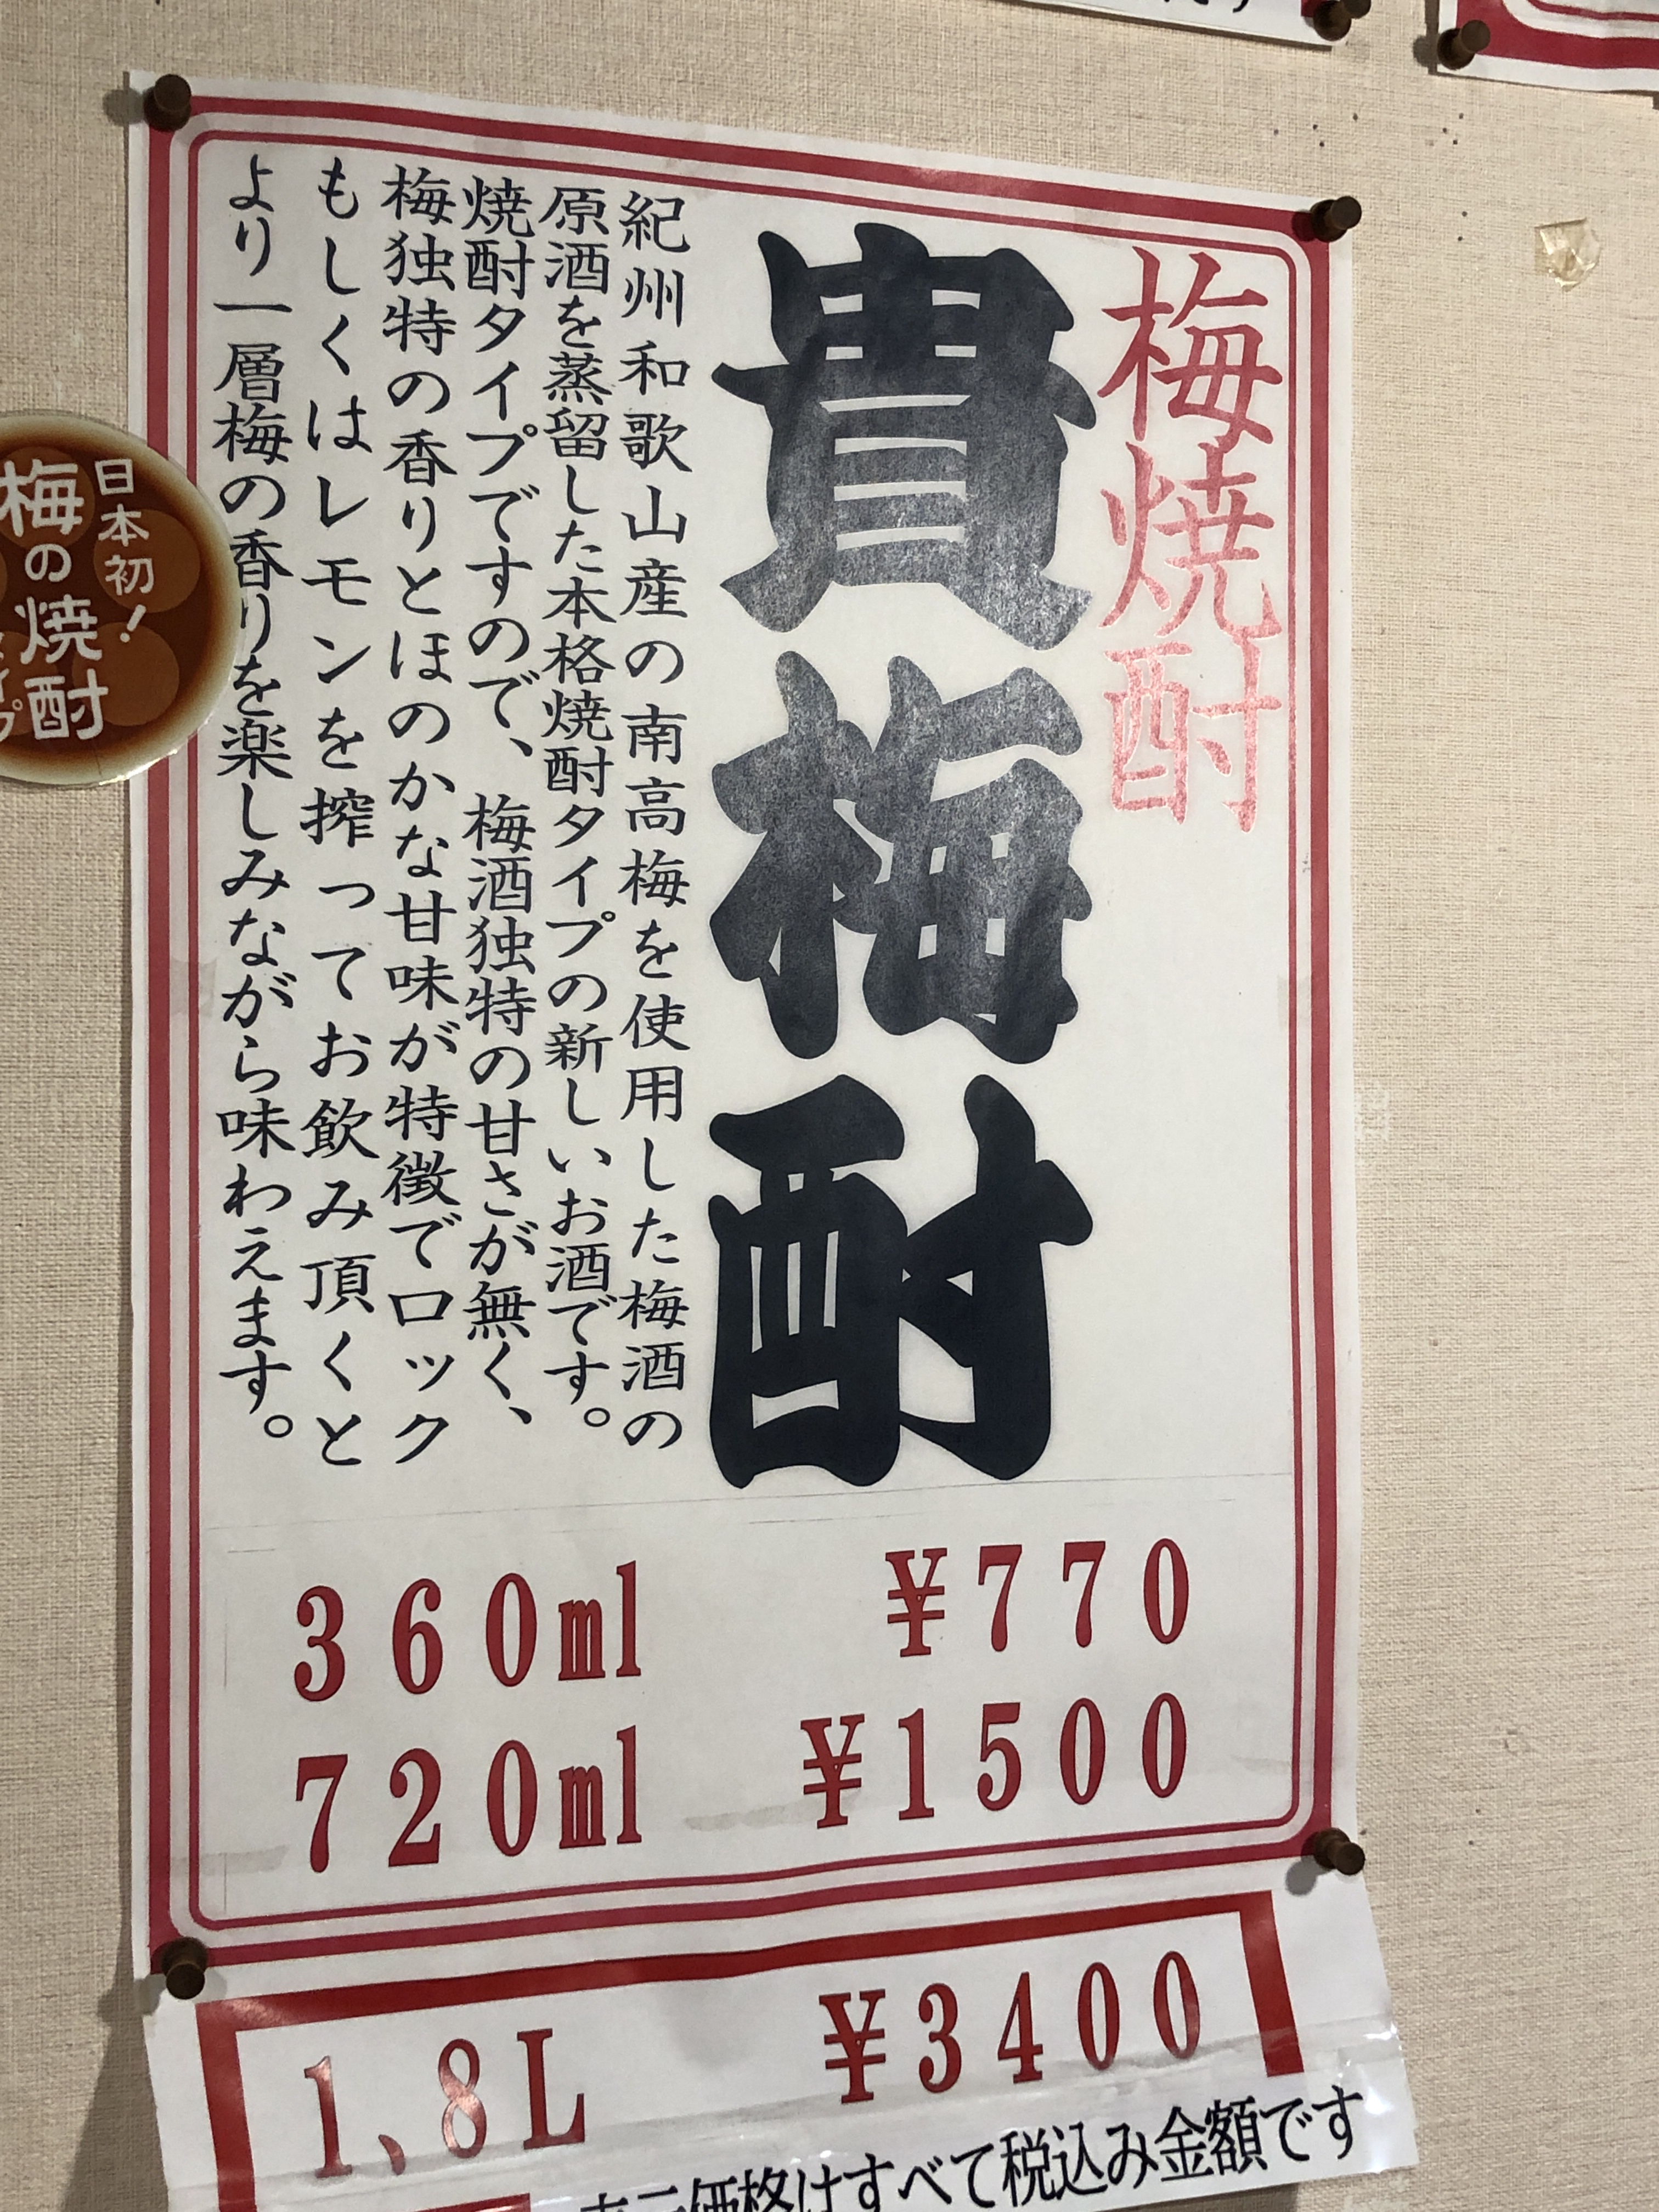 梅焼酎
貴梅酎
紀州和歌山産の南高梅を使用した梅酒の
原酒を蒸留した本格焼酎タイプの新しいお酒です。
焼酎タイプですので、梅酒独特の甘さが無く、
梅独特の香りとほのかな甘味が特徴でロック
もしくはレモンを搾ってお飲み頂くと
より一層梅の香りを楽しみながら味わえます。
360ml ¥770
720ml ¥1500
1、8L ¥3400
価格はすべて税込み金額です
日本初!
梅の焼酎